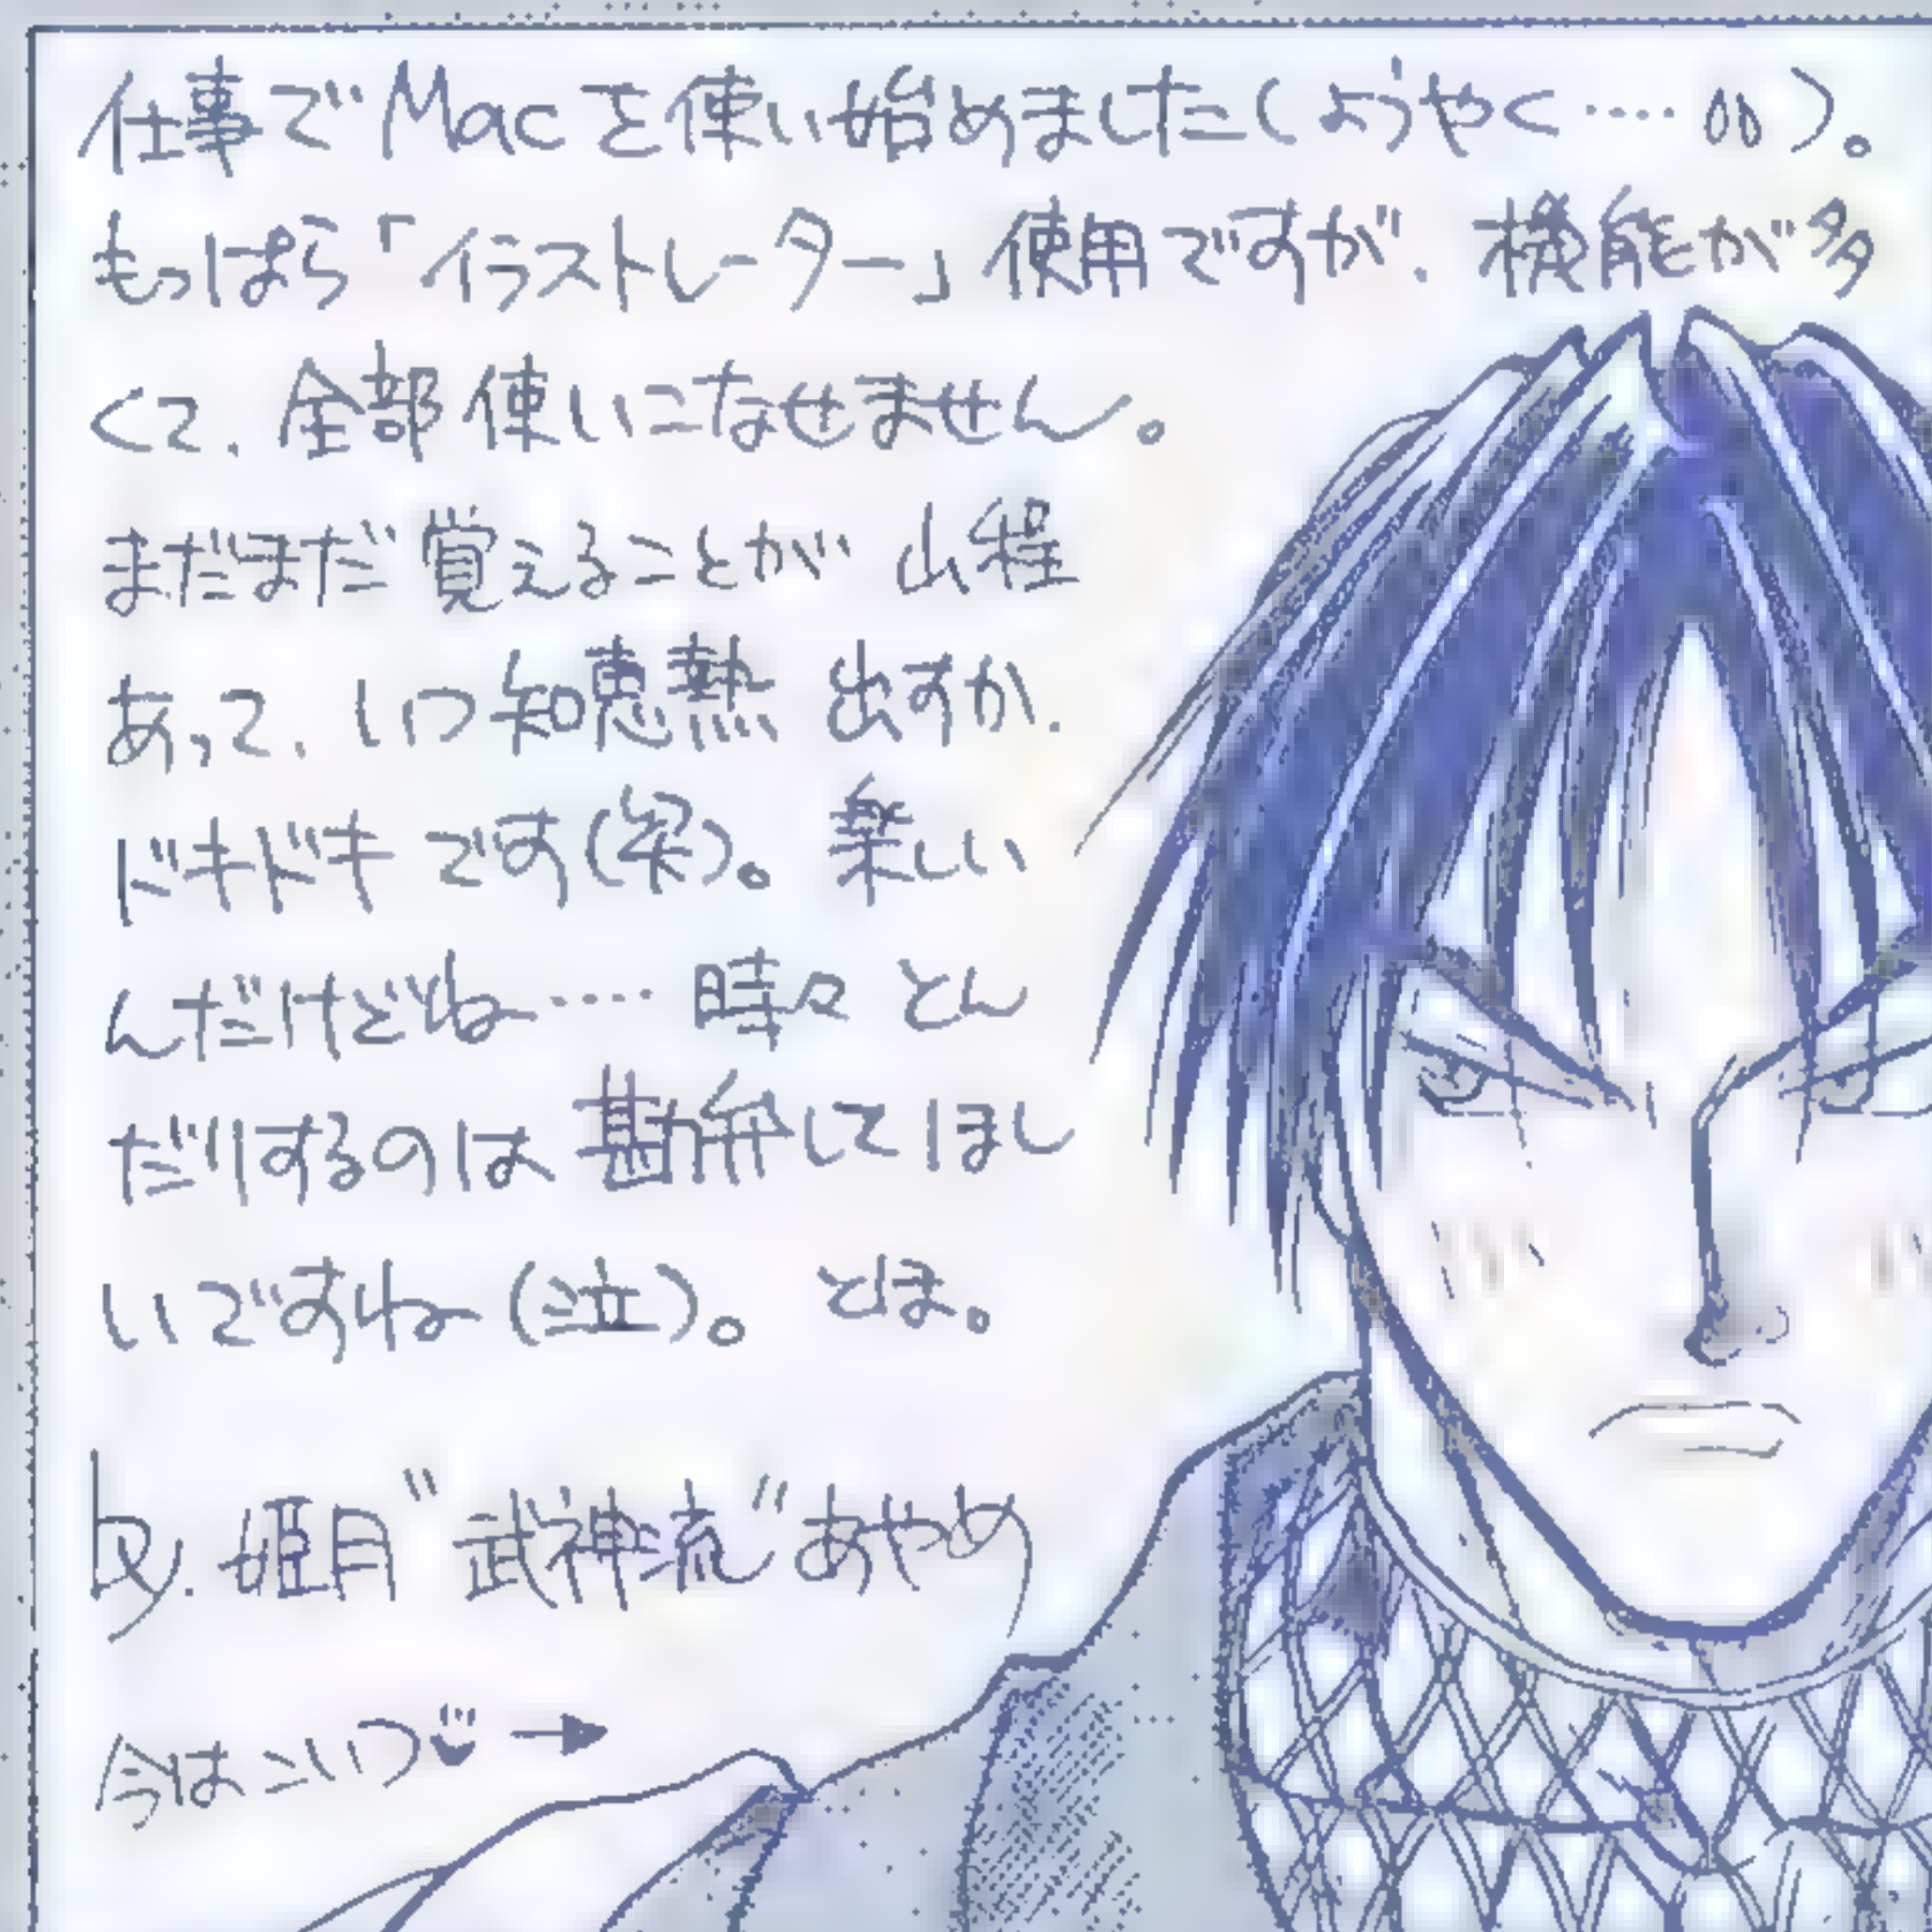 仕事でMacを使い始めました(ようやく‥‥)。
もっぱら「イラストレーター」使用ですが、機能が多
くて、全部使いこなせません。
まだまだ覚えることが山程
あって、いつ知恵熱出すか、
ドキドキです(笑)。楽しい
んだけどね‥‥時々とん
だりするのは勘弁してほし
いですね(泣)。とほ。
by.姫月"武神流"あやめ
今はこいつ→